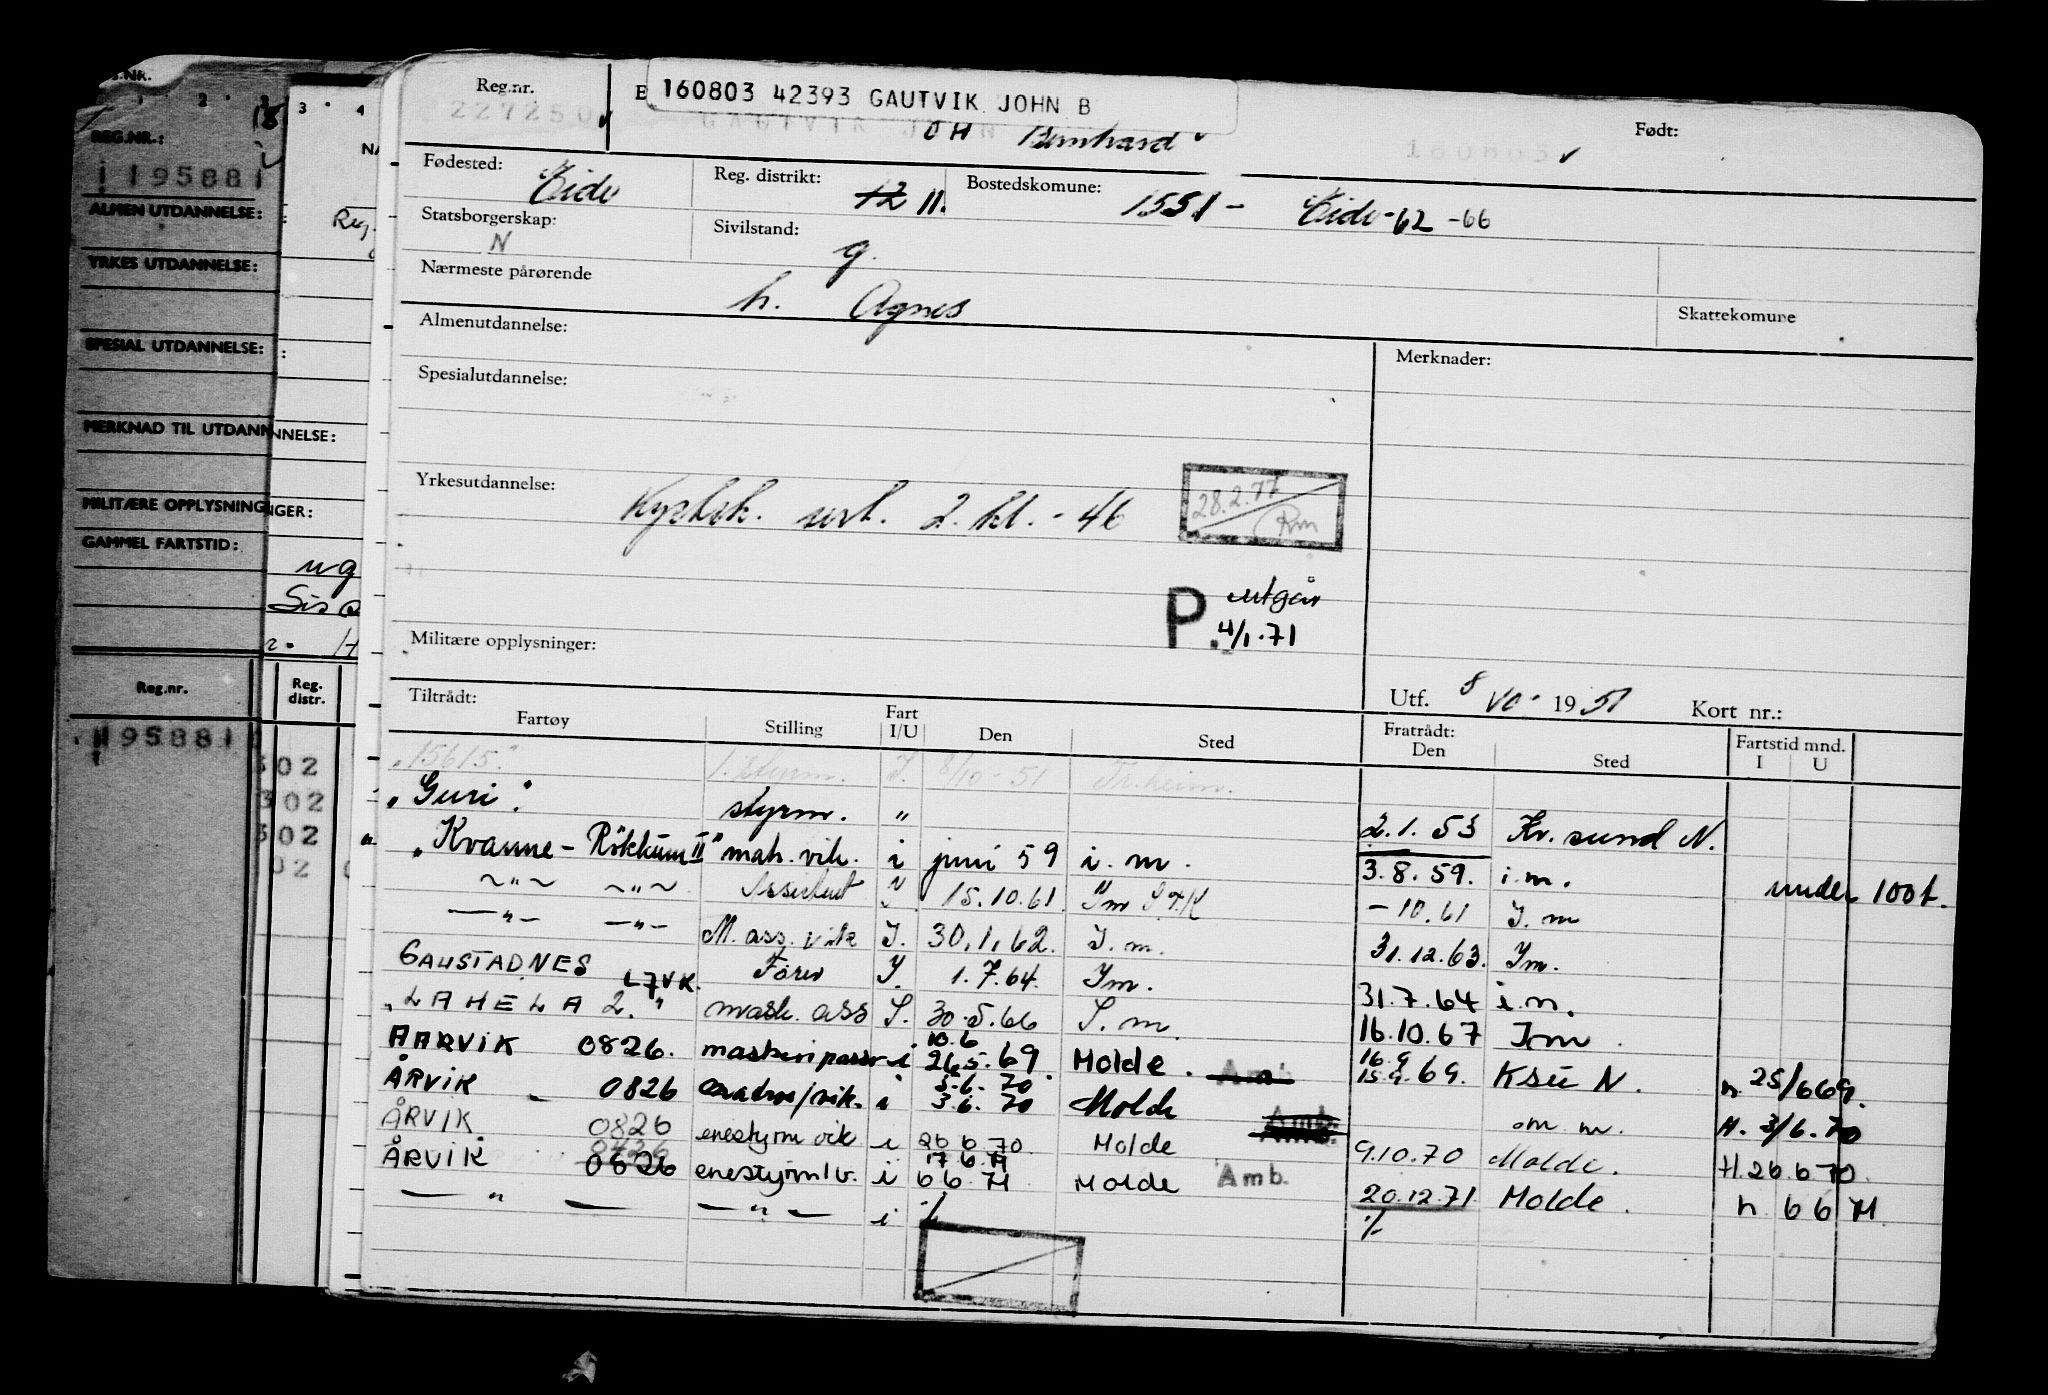 S.NR.
1 2 3 3 4
REG.NR.:
195881
NA
ALMEN UTDANNELSE:
Reg.
YRKES UTDANNELSE:
SPESIAL UTDANNELSE:
MERKNAD TIL UTDANNELSE:
MILITÆRE OPPLYSNINGER:
GAMMEL FARTSTID:
ug
Reg.nr. Reg. distr.
195881
302
302
302
02
Reg.nr. E 160803 42393 GAUTVIK JOHN B Født:
227250 OH Bernhard 160803
Fødested: Eide Reg. distrikt: 12 11. Bostedskomune: 1551 - Eide-62 -66
Statsborgerskap: N Sivilstand: g.
Nærmeste pårørende h. Agnes Skattekomune
Almenutdannelse: Merknader:
Spesialutdannelse:
Yrkesutdannelse: Kystsk. sert. 2. kl. - 46 28.2.77 Rm
P. utgår
4/1.71
Militære opplysninger:
Utf. 8 10- 1951 Kort nr.:
Tiltrådt: Fartøy Stilling Fart I/U Den Sted Fratrådt: Den Sted Fartstid mnd. I U
"15615" 1. styrm. I. 8/10-51 Tr.heim.
"Guri". styrm. " 2.1.53 Kr.sund N.
"Kvanne - Rökkum II" mah. vik. i juni 59 i.m. 3.8.59. i.m. under 100 t.
~"~ ~"~ Assistent 15.10.61. Im - 10.61 I.m
—"— —"— M. ass. vik I. 30.1.62. I.m. 31.12.63. Im.
GAUSTADNES L7VK. Fører I. 1.7.64. Im. 31.7.64 i.m.
"LAHELA 2." mask. ass I. 30.5.66 I.m. 16.10.67 I m.
AARVIK 0826. maskinpasser i 10.6 26.5.69 Molde. Amb 16.9 15.9.69. KSU N. n. 25/6 69.
ÅRVIK - 0826 i 5.6.70 3.6.70 Molde Amb. om m. H. 3/6.70
ÅRVIK 0826 enestyrm vik i 26 6 70 Molde 9.10.70 Molde. H. 26 6 70.
ÅRVIK 0426 0826 enestyrm/v. i 17.6.71 6 6.71 Molde Amb. 20.12.71. Molde. n 6 6 71.
—"— — —"— i % %